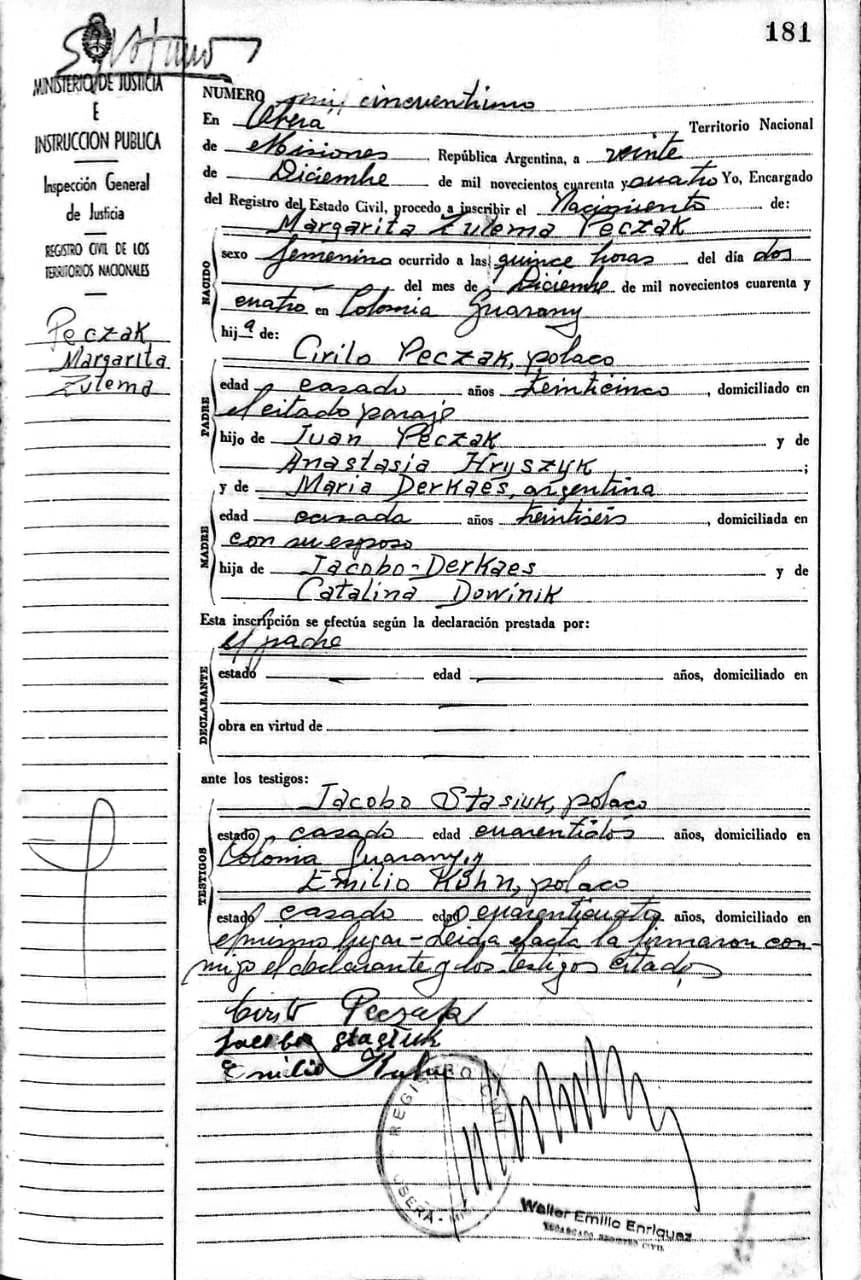 181
MINISTERIO DE JUSTICIA
E
INSTRUCCION PUBLICA
Inspección General
de Justicia
REGISTRO CIVIL DE LOS
TERRITORIOS NACIONALES
Peczak
Margarita
Zulema
NUMERO mil cincuentiuno
En Oberá Territorio Nacional
de Misiones República Argentina, a veinte
de Diciembre de mil novecientos cuarenta y cuatro Yo, Encargado
del Registro del Estado Civil, procedo a inscribir el Nacimiento de:
Margarita Zulema Peczak
NACIDO
sexo femenino ocurrido a las quince horas del día dos
del mes de Diciembre de mil novecientos cuarenta y
cuatro en Colonia Guarany
hija de:
Cirilo Peczak, polaco
PADRE
edad casado años treinticinco, domiciliado en
el citado paraje
hijo de Juan Peczak y de
Anastasia Hryszyk;
y de Maria Derkaes, argentina
MADRE
edad casada años treintiseis, domiciliada en
con su esposo
hija de Jacobo-Derkaes y de
Catalina Dowinik
Esta inscripción se efectúa según la declaración prestada por:
el padre
DECLARANTE
estado edad años, domiciliado en
obra en virtud de
ante los testigos:
Jacobo Stasiuk, polaco
TESTIGOS
estado casado edad cuarentidós años, domiciliado en
Colonia Guarany, y
Emilio Kühn, polaco
estado casado edad cuarenticuatro años, domiciliado en
el mismo lugar - Leida el acta la firmaron con-
migo el declarante y los testigos citados
Cirilo Peczak
Jacobo Stasiuk
Emilio Kuhn
REGISTRO CIVIL
OBERÁ - MIS
Walter Emilio Enriquez
ENCARGADO REGISTRO CIVIL